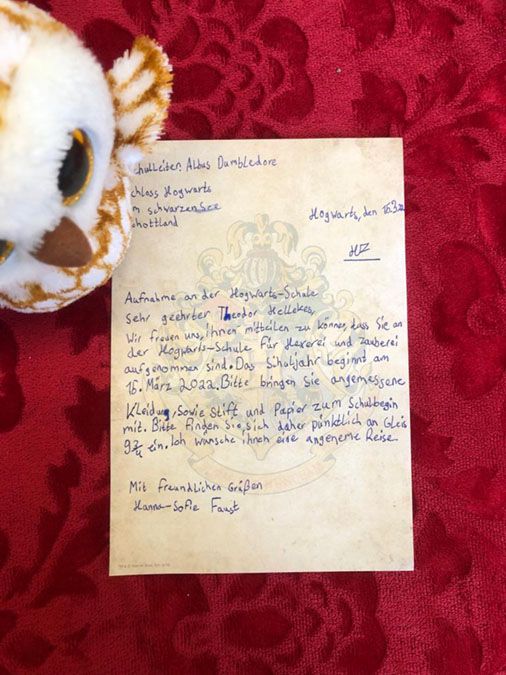 chulleiter: Albus Dumbledore
chloss Hogwarts
m schwarzensee
chottland
Hogwarts, den 16.3.22
HZ
Aufnahme an der Hogwarts-Schule
Sehr geehrter Theodor Hellekes,
Wir freuen uns, ihnen mitteilen zu können, dass Sie an
der Hogwarts-Schule für Hexerei und zauberei
aufgenommen sind. Das Schuljahr beginnt am
16. März 2022. Bitte bringen Sie angemessene
Kleidung, sowie Stift und Papier zum Schulbegin
mit. Bitte finden Sie, sich daher pünktlich an Gleis
9¾ ein. Ich wünsche ihnen eine angeneme Reise.
Mit freundlichen Grüßen
Hanna-Sofie Faust